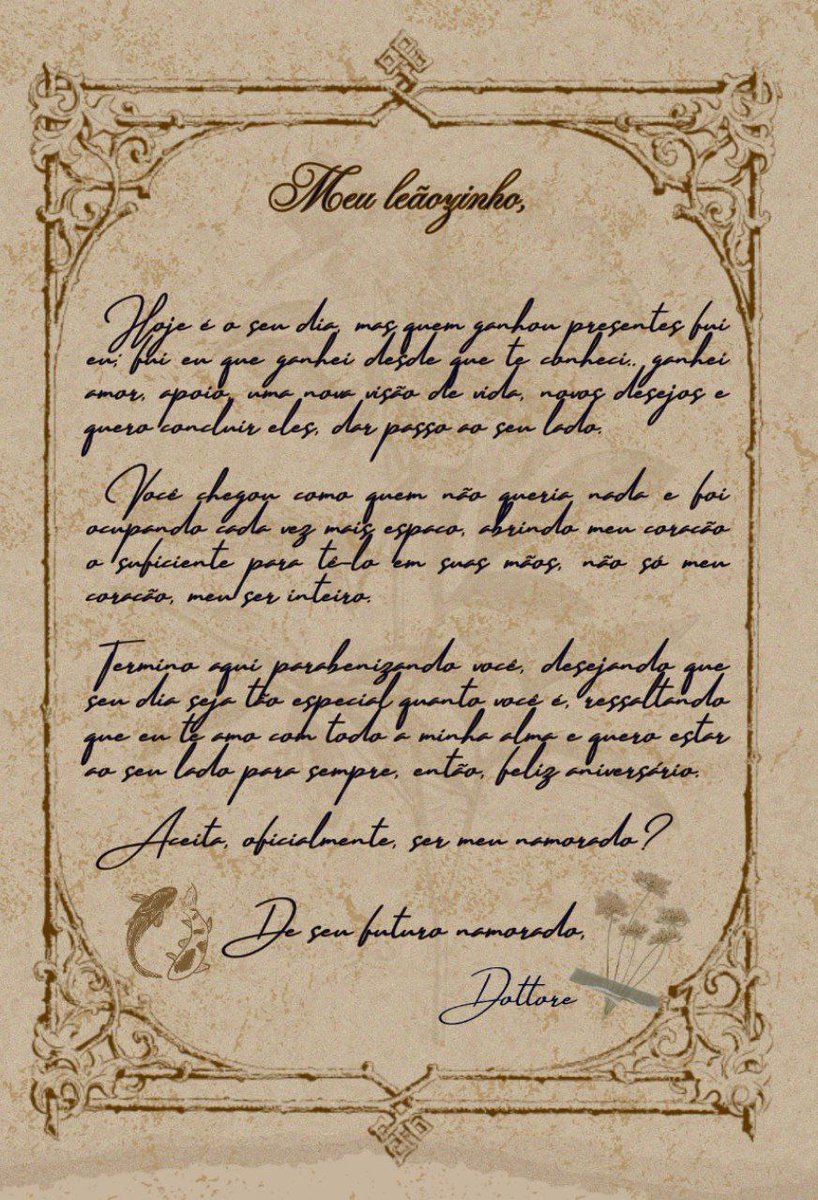 Meu leãozinho,
Hoje é o seu dia, mas quem ganhou presentes fui
eu; fui eu que ganhei desde que te conheci.. ganhei
amor, apoio, uma nova visão de vida, novos desejos e
quero concluir eles, dar passo ao seu lado.
Você chegou como quem não queria nada e foi
ocupando cada vez mais espaco, abrindo meu coracão
o suficiente para tê-lo em suas mãos, não só meu
coracão, meu ser inteiro.
Termino aqui parabenizando você, desejando que
seu dia seja tão especial quanto você é, ressaltando
que eu te amo com todo a minha alma e quero estar
ao seu lado para sempre, então, feliz aniversário.
Aceita, oficialmente, ser meu namorado?
De seu futuro namorado,
Dottore